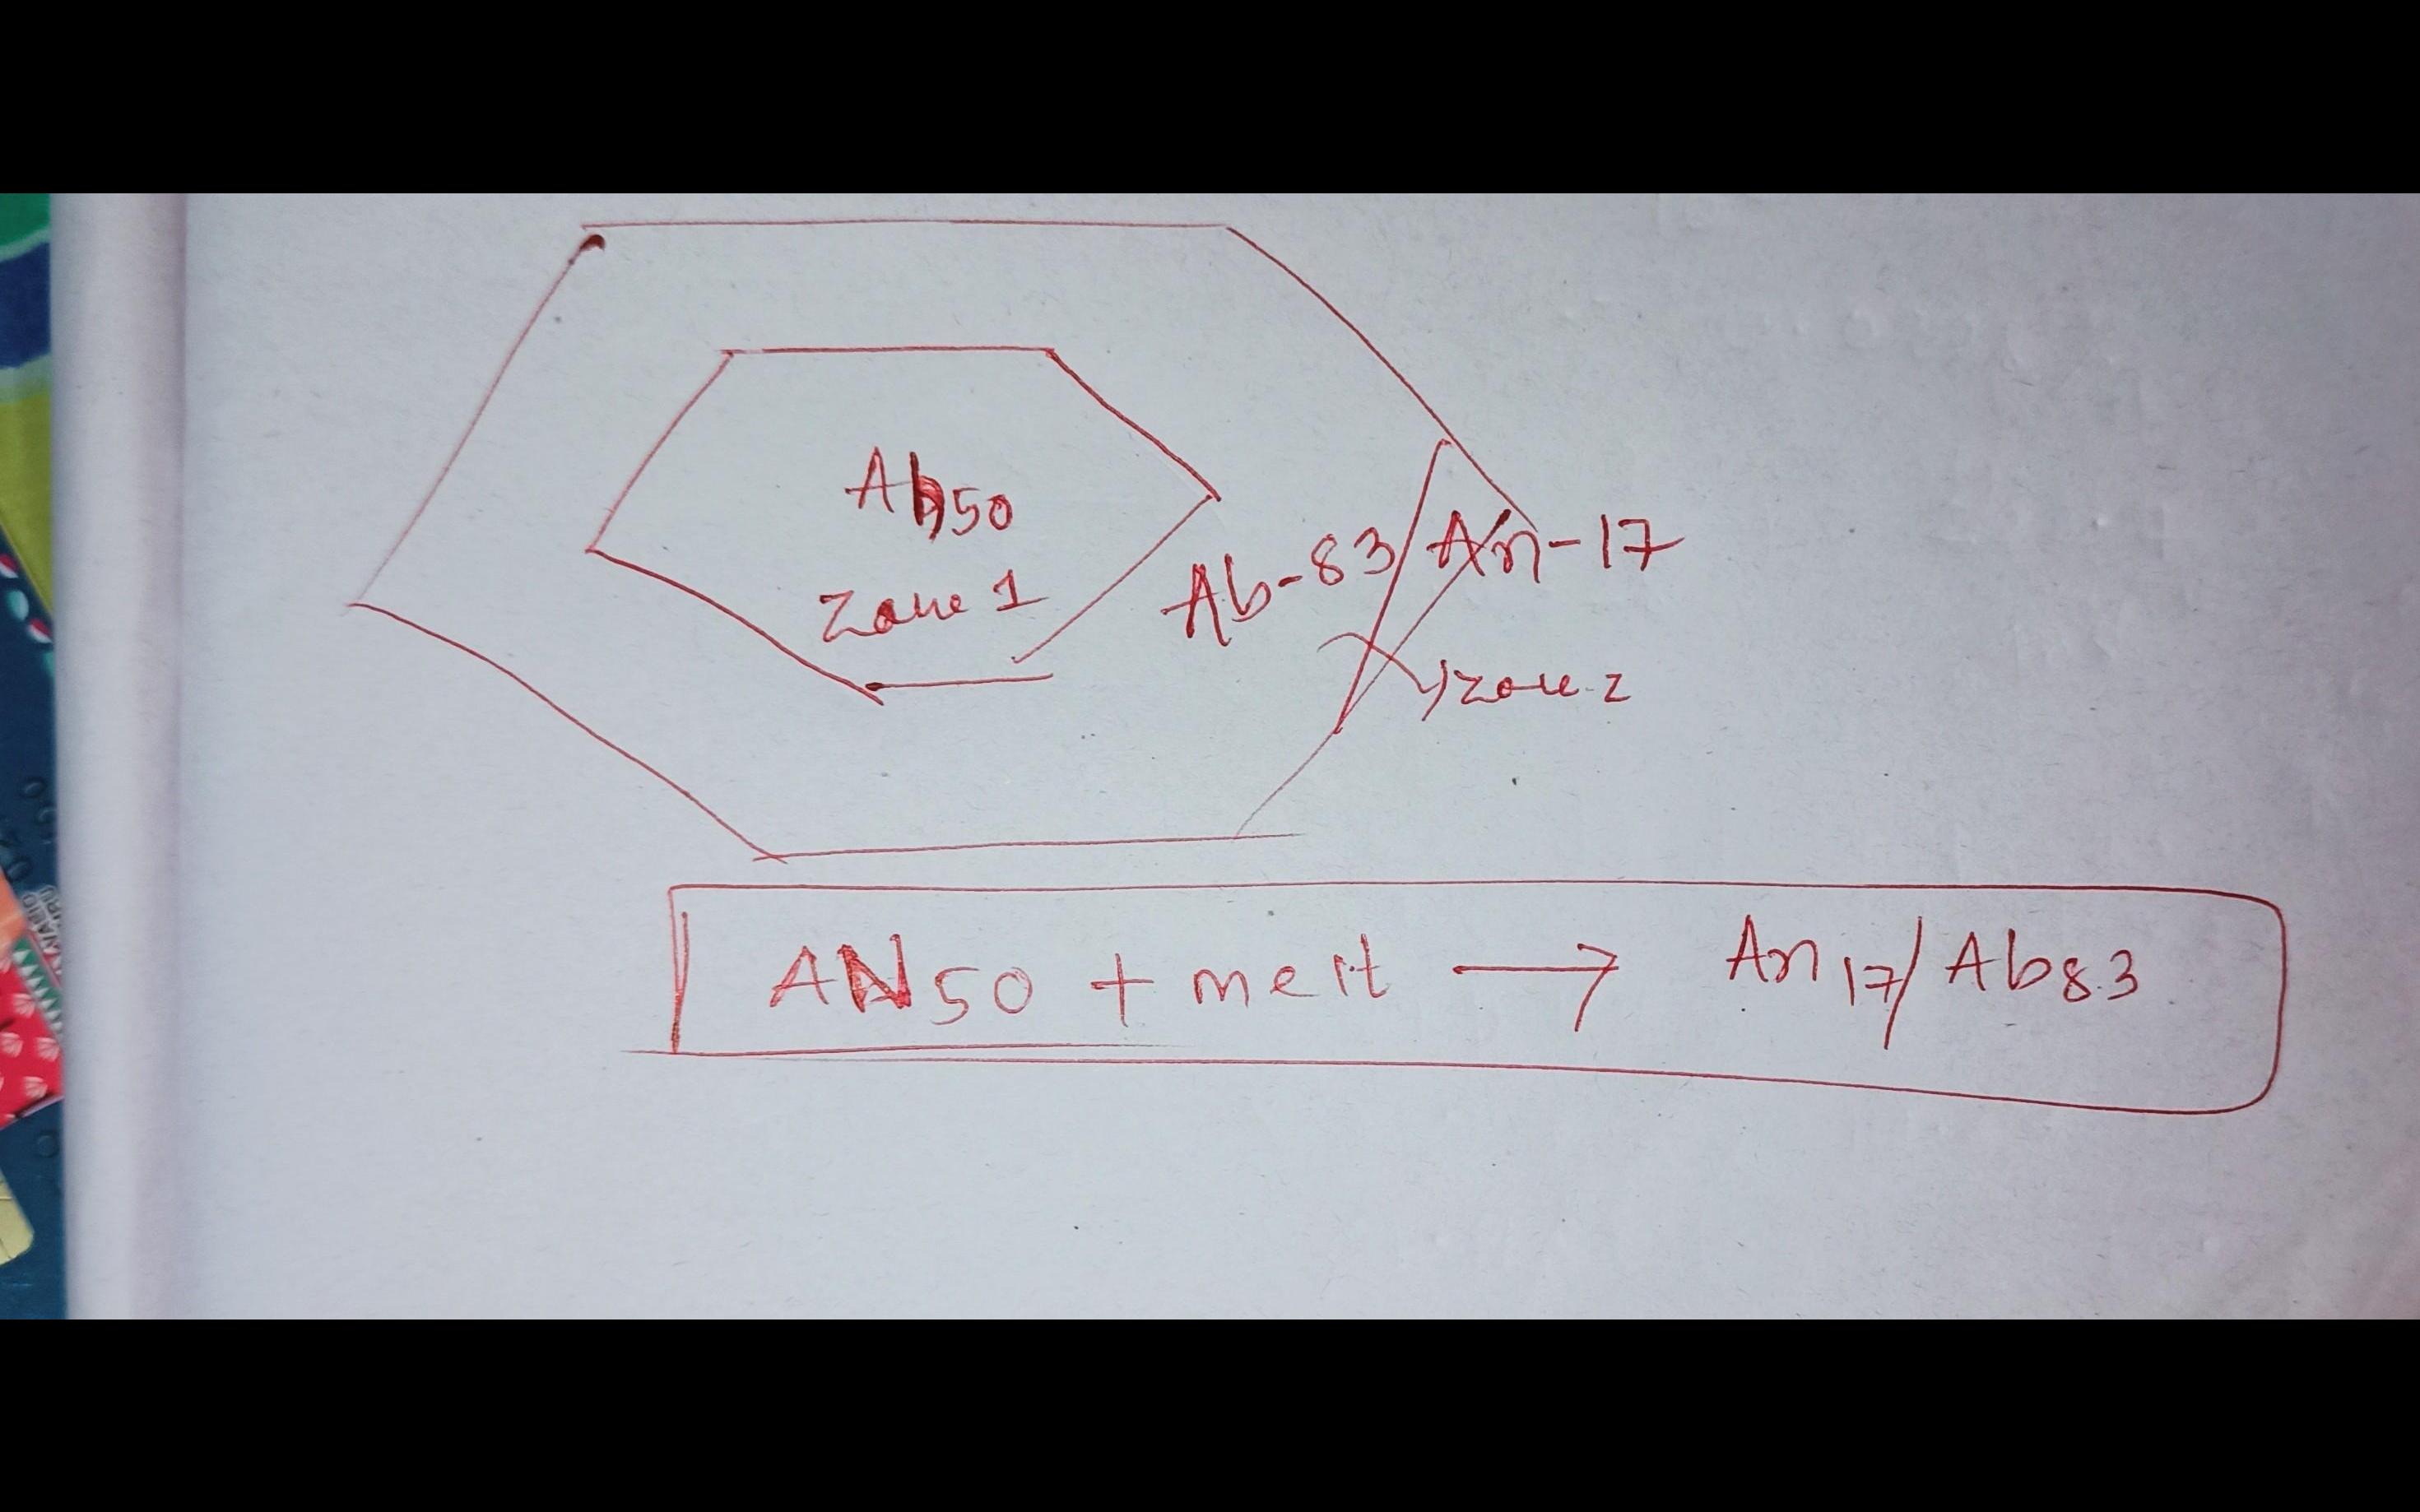 An50
Zone 1
Ab-83/An-17
Zone 2
AN50 + melt → An17/Ab83